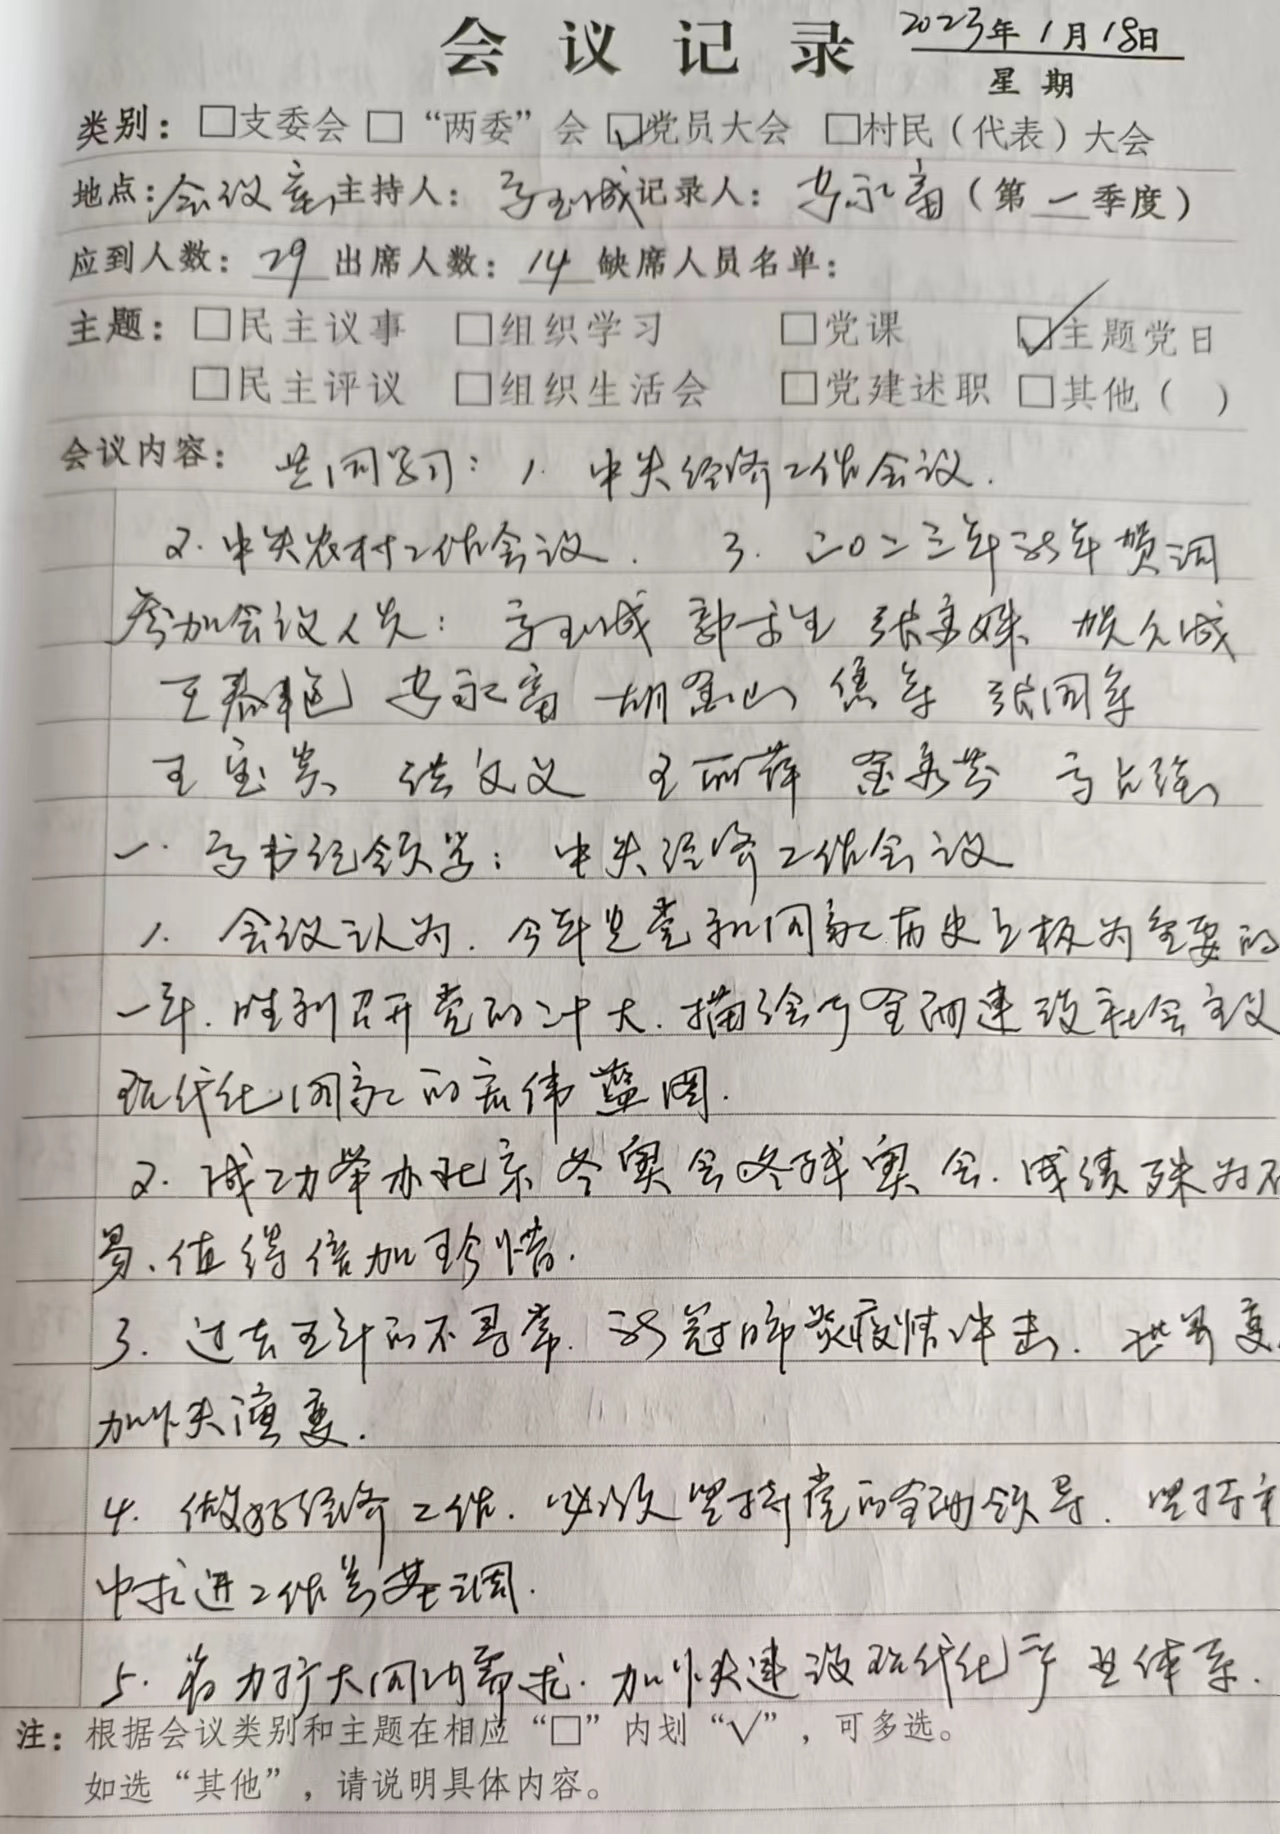 会议记录 2023年1月18日
星期
类别：□支委会 □“两委”会 ☑党员大会 □村民（代表）大会
地点：会议室 主持人：高玉城 记录人：安永富（第一季度）
应到人数：29 出席人数：14 缺席人员名单：
主题：□民主议事 □组织学习 □党课 ☑主题党日
□民主评议 □组织生活会 □党建述职 □其他（ ）
会议内容：共同学习：1. 中央经济工作会议.
2. 中央农村工作会议. 3. 二0二三年新年贺词
参加会议人员：高玉城 郭 生 张 姝 成
王春艳 安永富 胡金山 焦军 张国军
王宝 洪文义 王丽萍 金秀芬 高占强
一. 高书记领学：中央经济工作会议
1. 会议认为. 今年是党和国家历史上极为重要的
一年. 胜利召开党的二十大. 描绘了全面建设社会主义
现代化国家的宏伟蓝图.
2. 成功举办北京冬奥会冬残奥会. 成绩殊为不
易、值得倍加珍惜.
3. 过去五年的不寻常. 新冠肺炎疫情冲击. 世界变
加快演变.
4. 做好经济工作. 必须坚持党的全面领导. 坚持
中求进工作总基调.
5. 着力扩大国内需求. 加快建设现代化产业体系.
注：根据会议类别和主题在相应“□”内划“√”，可多选。
如选“其他”，请说明具体内容。